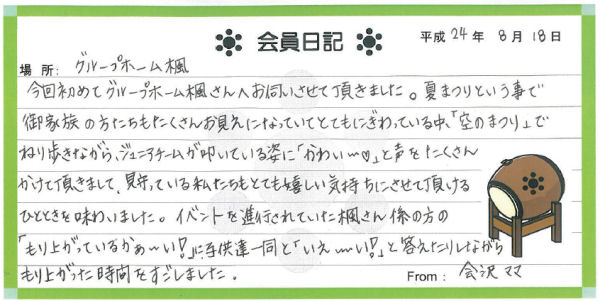 会員日記
平成24年8月18日
場所: グループホーム楓
今回初めてグループホーム楓さんへお伺いさせて頂きました。夏まつりという事で
御家族の方たちもたくさんお見えになっていてとてもにぎわっている中、「空のまつり」で
ねり歩きながら、ジュニアチームが叩いている姿に「かわい〜♡」と声をたくさん
かけて頂きまして、見守っている私たちもとても嬉しい気持ちにさせて頂ける
ひとときを味わいました。イベントを進行されていた楓さん係の方の
「もり上がっているかぁ〜い!」に子供達一同と「いえ〜い!」と答えたりしながら
もり上がった時間をすごしました。
From: 会沢ママ